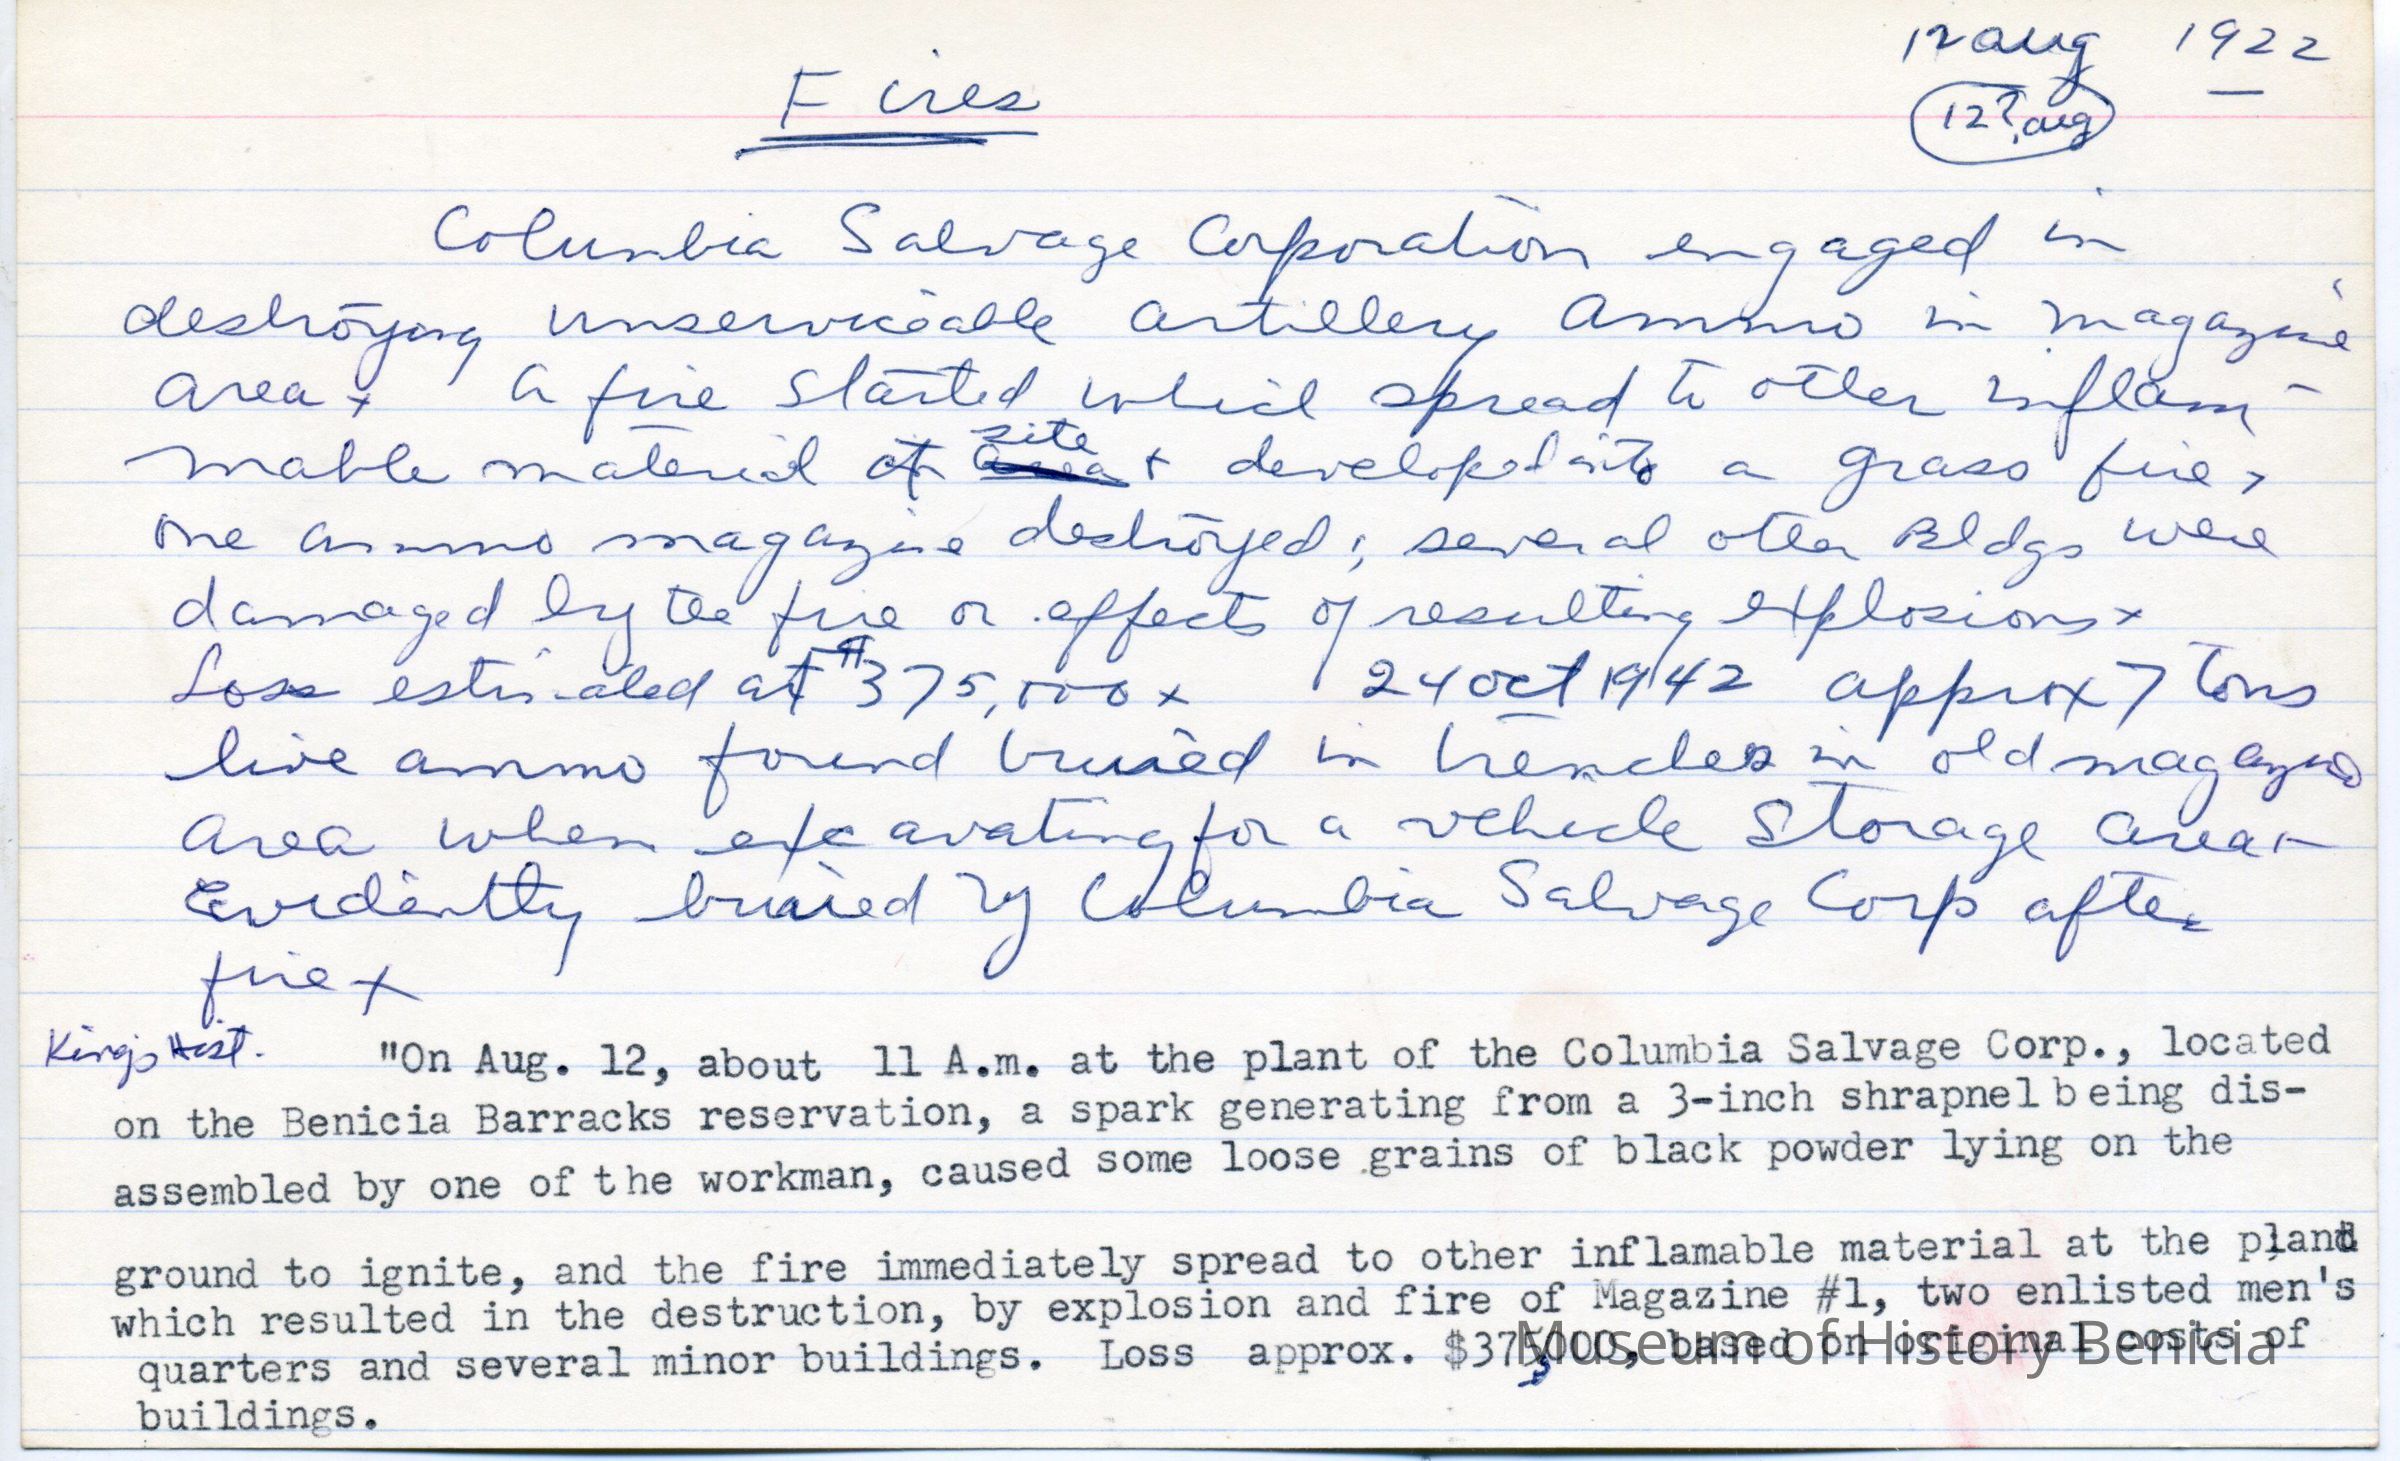 12 Aug 1922
Fires
12?, Aug
Columbia Salvage Corporation engaged in
destroying unserviceable artillery ammo in magazine
area x A fire started which spread to other inflam-
mable material at area site + developed into a grass fire,
one ammo magazine destroyed; several other Bldgs were
damaged by the fire or effects of resulting explosions x
Loss estimated at $375,000 x 24 Oct 1942 approx 7 Tons
live ammo found buried in trenches in old magazine
area when excavating for a vehicle storage area -
Evidently buried by Columbia Salvage Corp after
fire x
King's Hist. "On Aug. 12, about 11 A.m. at the plant of the Columbia Salvage Corp., located
on the Benicia Barracks reservation, a spark generating from a 3-inch shrapnel being dis-
assembled by one of the workman, caused some loose grains of black powder lying on the
ground to ignite, and the fire immediately spread to other inflamable material at the plant
which resulted in the destruction, by explosion and fire of Magazine #1, two enlisted men's
quarters and several minor buildings. Loss approx. $375,000, based on original costs of
buildings.
Museum of History Benicia